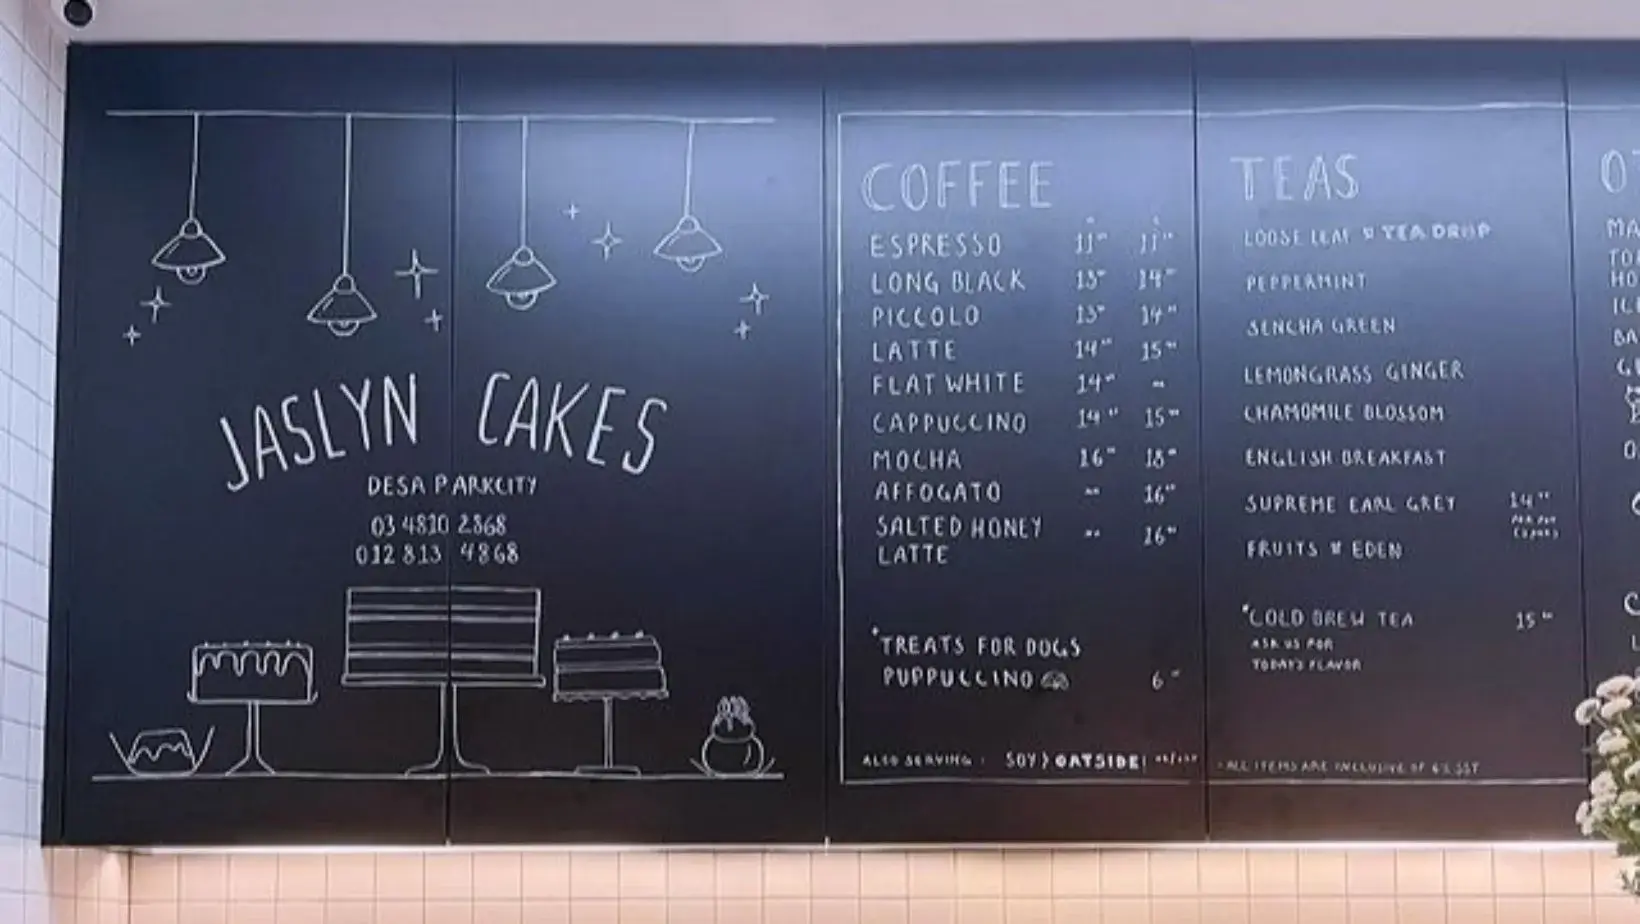 JASLYN CAKES
DESA PARKCITY
03 4810 2868
012 813 4868
COFFEE
ESPRESSO 11 11
LONG BLACK 13 14
PICCOLO 13 14
LATTE 14 15
FLAT WHITE 14 --
CAPPUCCINO 14 15
MOCHA 16 18
AFFOGATO -- 16
SALTED HONEY -- 16
LATTE
*TREATS FOR DOGS
PUPPUCCINO 6
ALSO SERVING : SOY } OATSIDE
TEAS
LOOSE LEAF TEA DROP
PEPPERMINT
SENCHA GREEN
LEMONGRASS GINGER
CHAMOMILE BLOSSOM
ENGLISH BREAKFAST
SUPREME EARL GREY 14
PER POT
FRUITS EDEN
*COLD BREW TEA 15
ASK US FOR
TODAY'S FLAVOR
- ALL ITEMS ARE INCLUSIVE OF 6% SST